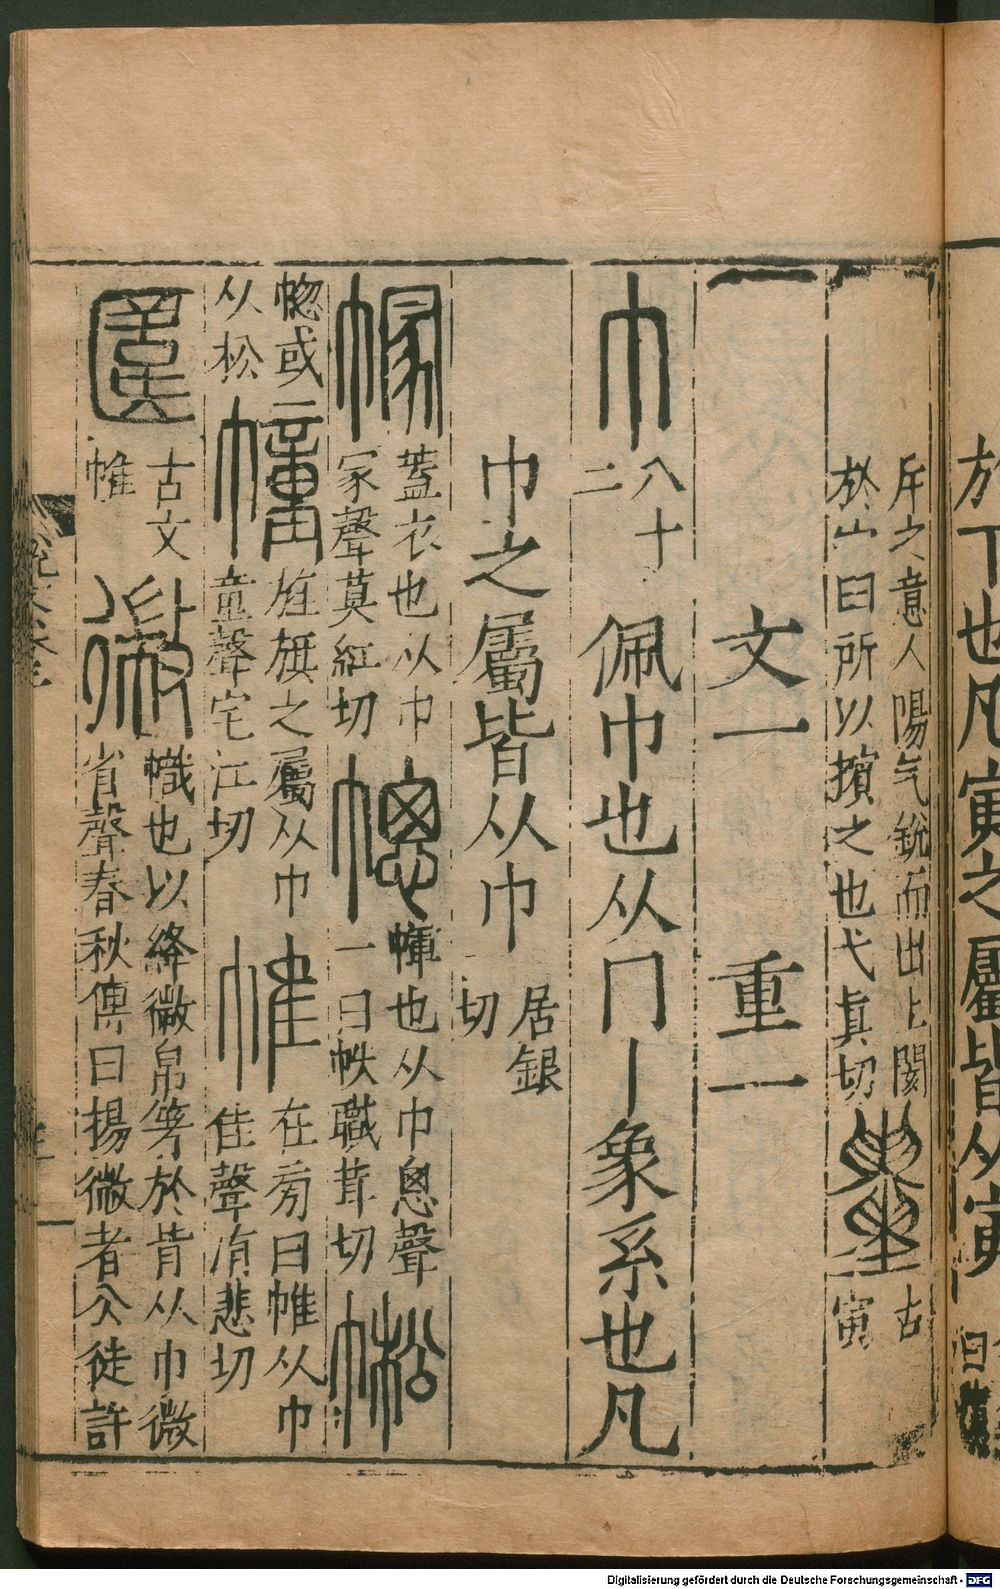 於下也凡寅之屬皆从寅
斥之意人陽气銳而出上閡
於宀曰所以擯之也弋眞切
古
寅
文一 重一
巾 八十二 佩巾也从冂丨象系也凡
巾之屬皆从巾 居銀切
幪 蓋衣也从巾冡聲莫紅切 幒 幝也从巾悤聲一曰帙職茸切 㡆
幒或从松 幢 旌旗之屬从巾童聲宅江切 帷 在旁曰帷从巾隹聲洧悲切
古文帷 幑 幟也以絳微帛箸於背从巾微省聲春秋傳曰揚微者公徒許
Digitalisierung gefördert durch die Deutsche Forschungsgemeinschaft - DFG